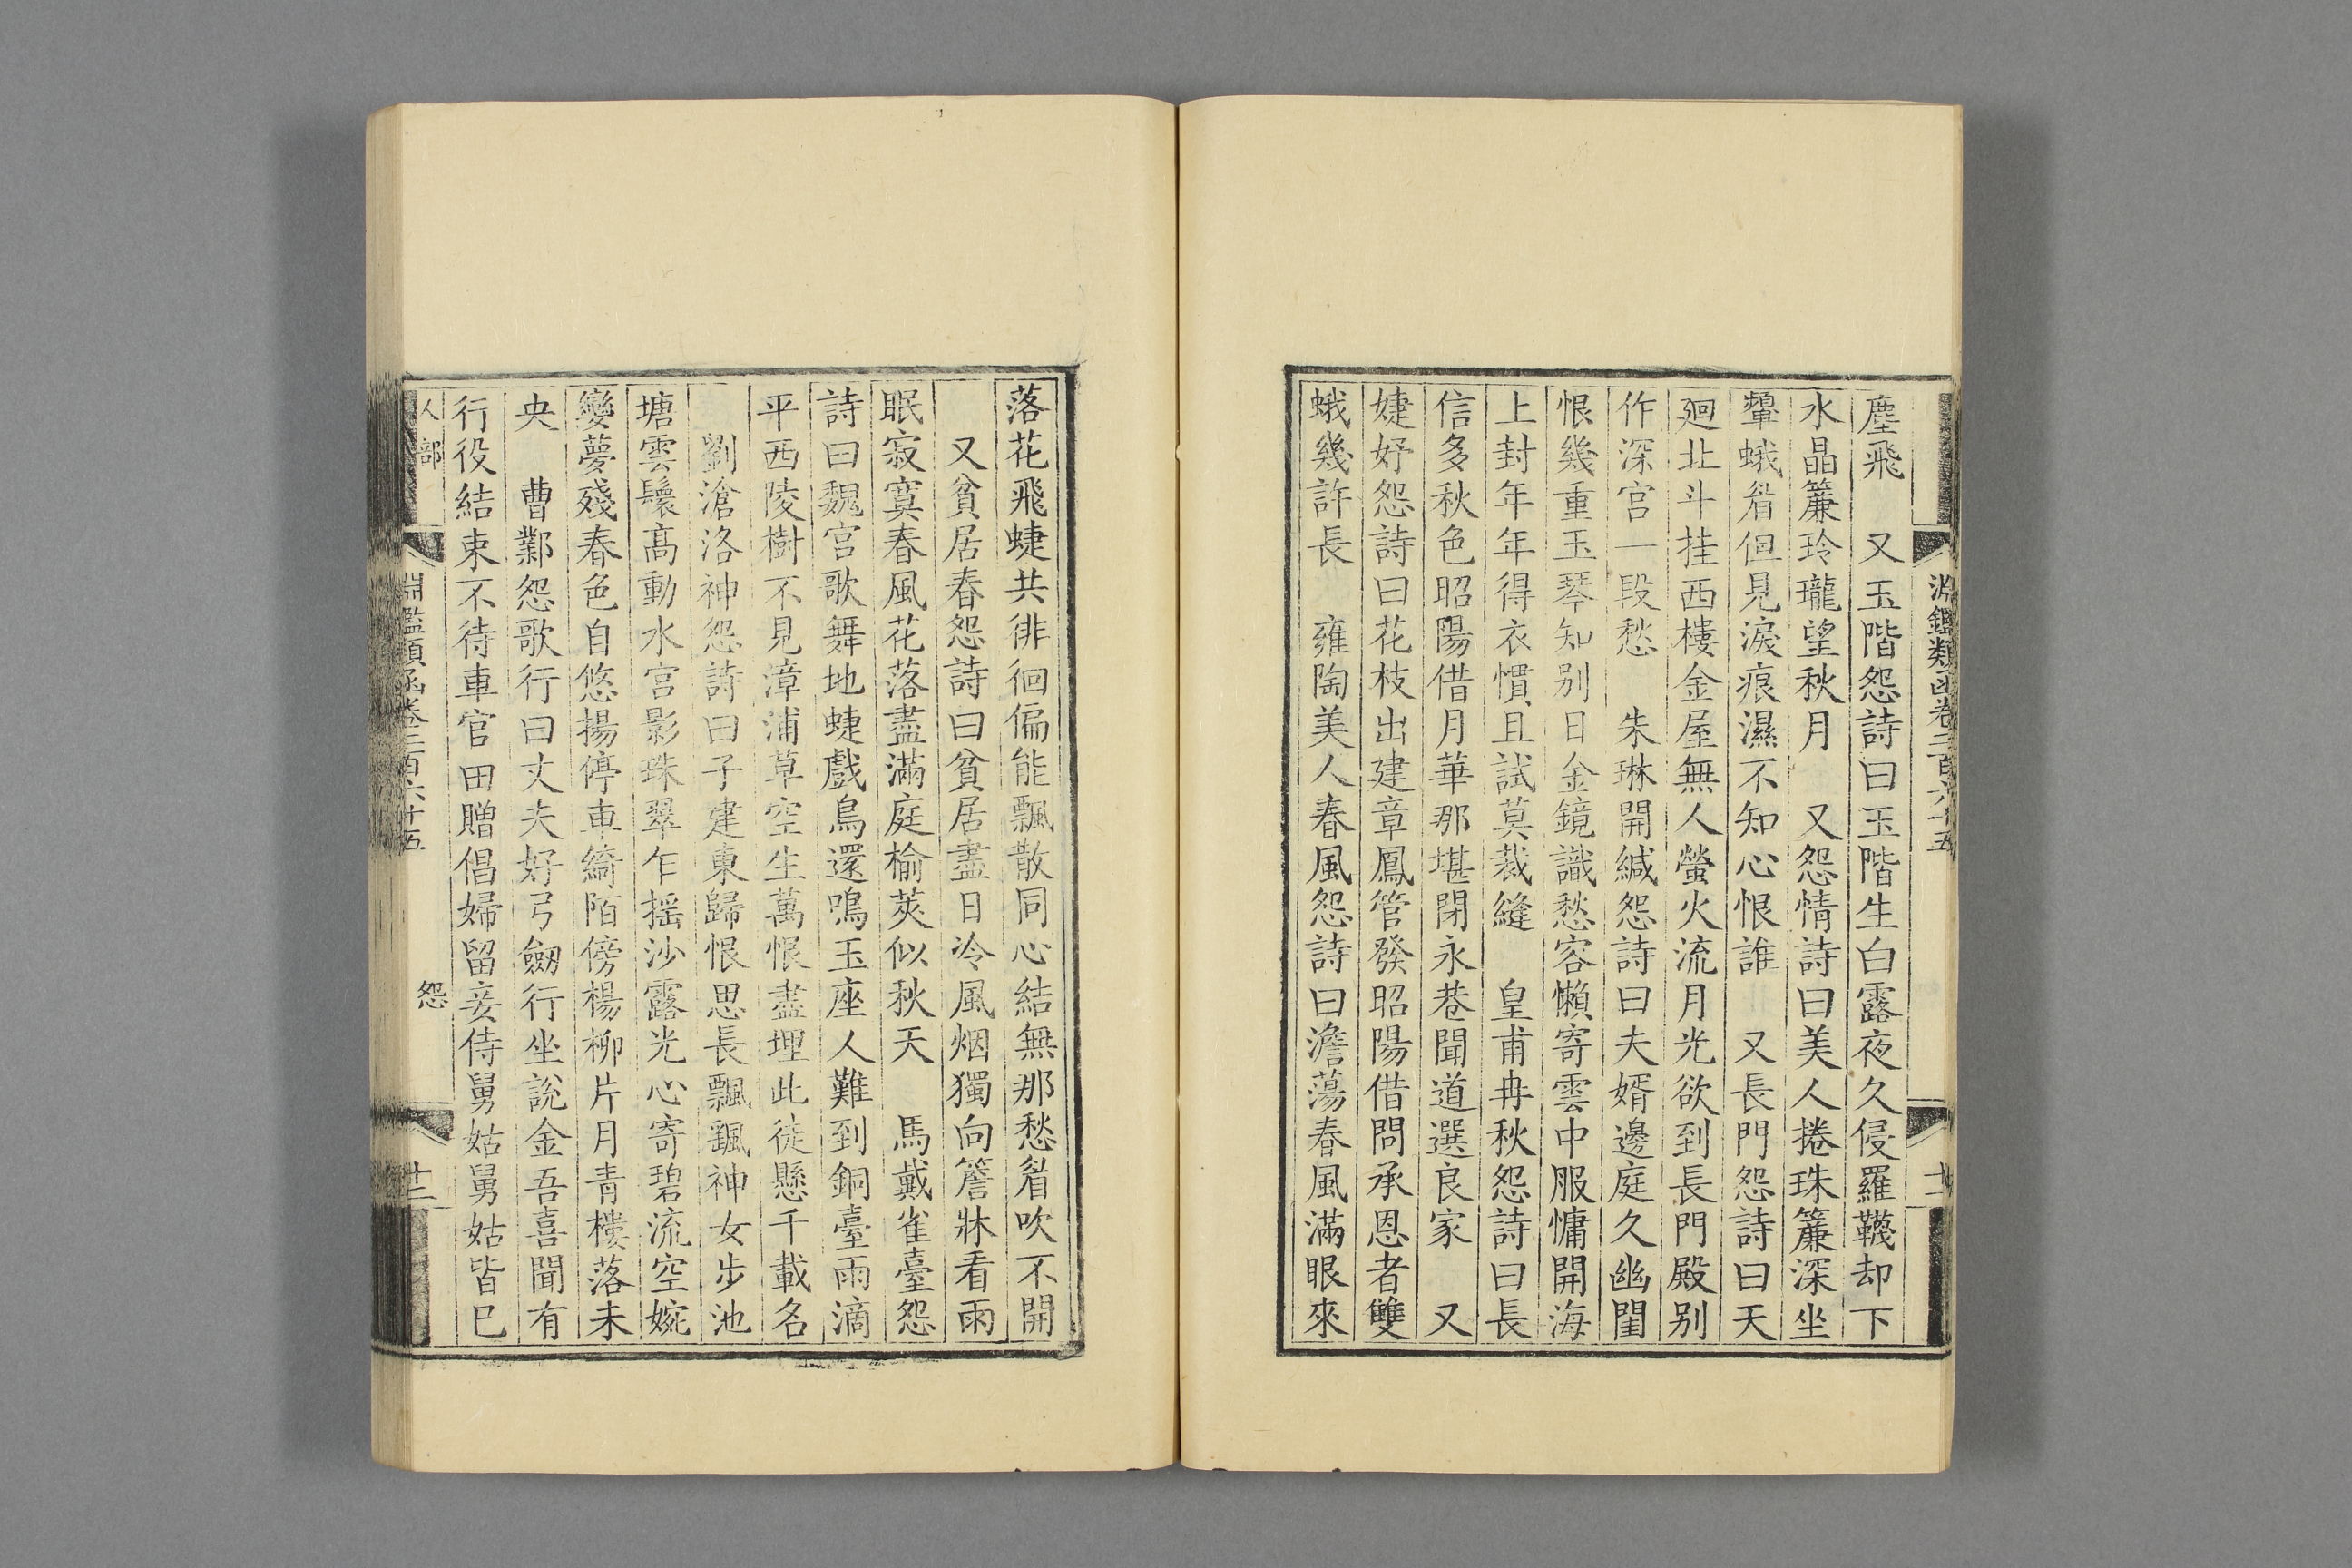 淵鑑類函卷二百六十五
十一
塵飛　又玉階怨詩曰玉階生白露夜久侵羅韈却下
水晶簾玲瓏望秋月　又怨情詩曰美人捲珠簾深坐
顰蛾睂但見淚痕濕不知心恨誰　又長門怨詩曰天
廻北斗挂西樓金屋無人螢火流月光欲到長門殿别
作深宫一段愁　朱琳開緘怨詩曰夫婿邊庭久幽閨
恨幾重玉琴知别日金鏡識愁容懶寄雲中服慵開海
上封年年得衣慣且試莫裁縫　皇甫冉秋怨詩曰長
信多秋色昭陽借月華那堪閉永巷聞道選良家　又
婕妤怨詩曰花枝出建章鳳管發昭陽借問承恩者雙
蛾幾許長　雍陶美人春風怨詩曰澹蕩春風滿眼來
落花飛蜨共徘徊偏能飄散同心結無那愁睂吹不開
又貧居春怨詩曰貧居盡日冷風烟獨向簷牀看雨
眠寂寞春風花落盡滿庭榆莢似秋天　馬戴雀臺怨
詩曰魏宫歌舞地蜨戲鳥還鳴玉座人難到銅臺雨滴
平西陵樹不見漳浦草空生萬恨盡埋此徒懸千載名
劉滄洛神怨詩曰子建東歸恨思長飄飄神女步池
塘雲鬟髙動水宫影珠翠乍摇沙露光心寄碧流空婉
孌夢殘春色自悠揚停車綺陌傍楊柳片月青樓落未
央　曹鄴怨歌行曰丈夫好弓劔行坐説金吾喜聞有
行役結束不待車官田贈倡婦留妾侍舅姑舅姑皆已
人部
淵鑑類函卷二百六十五
怨
十二